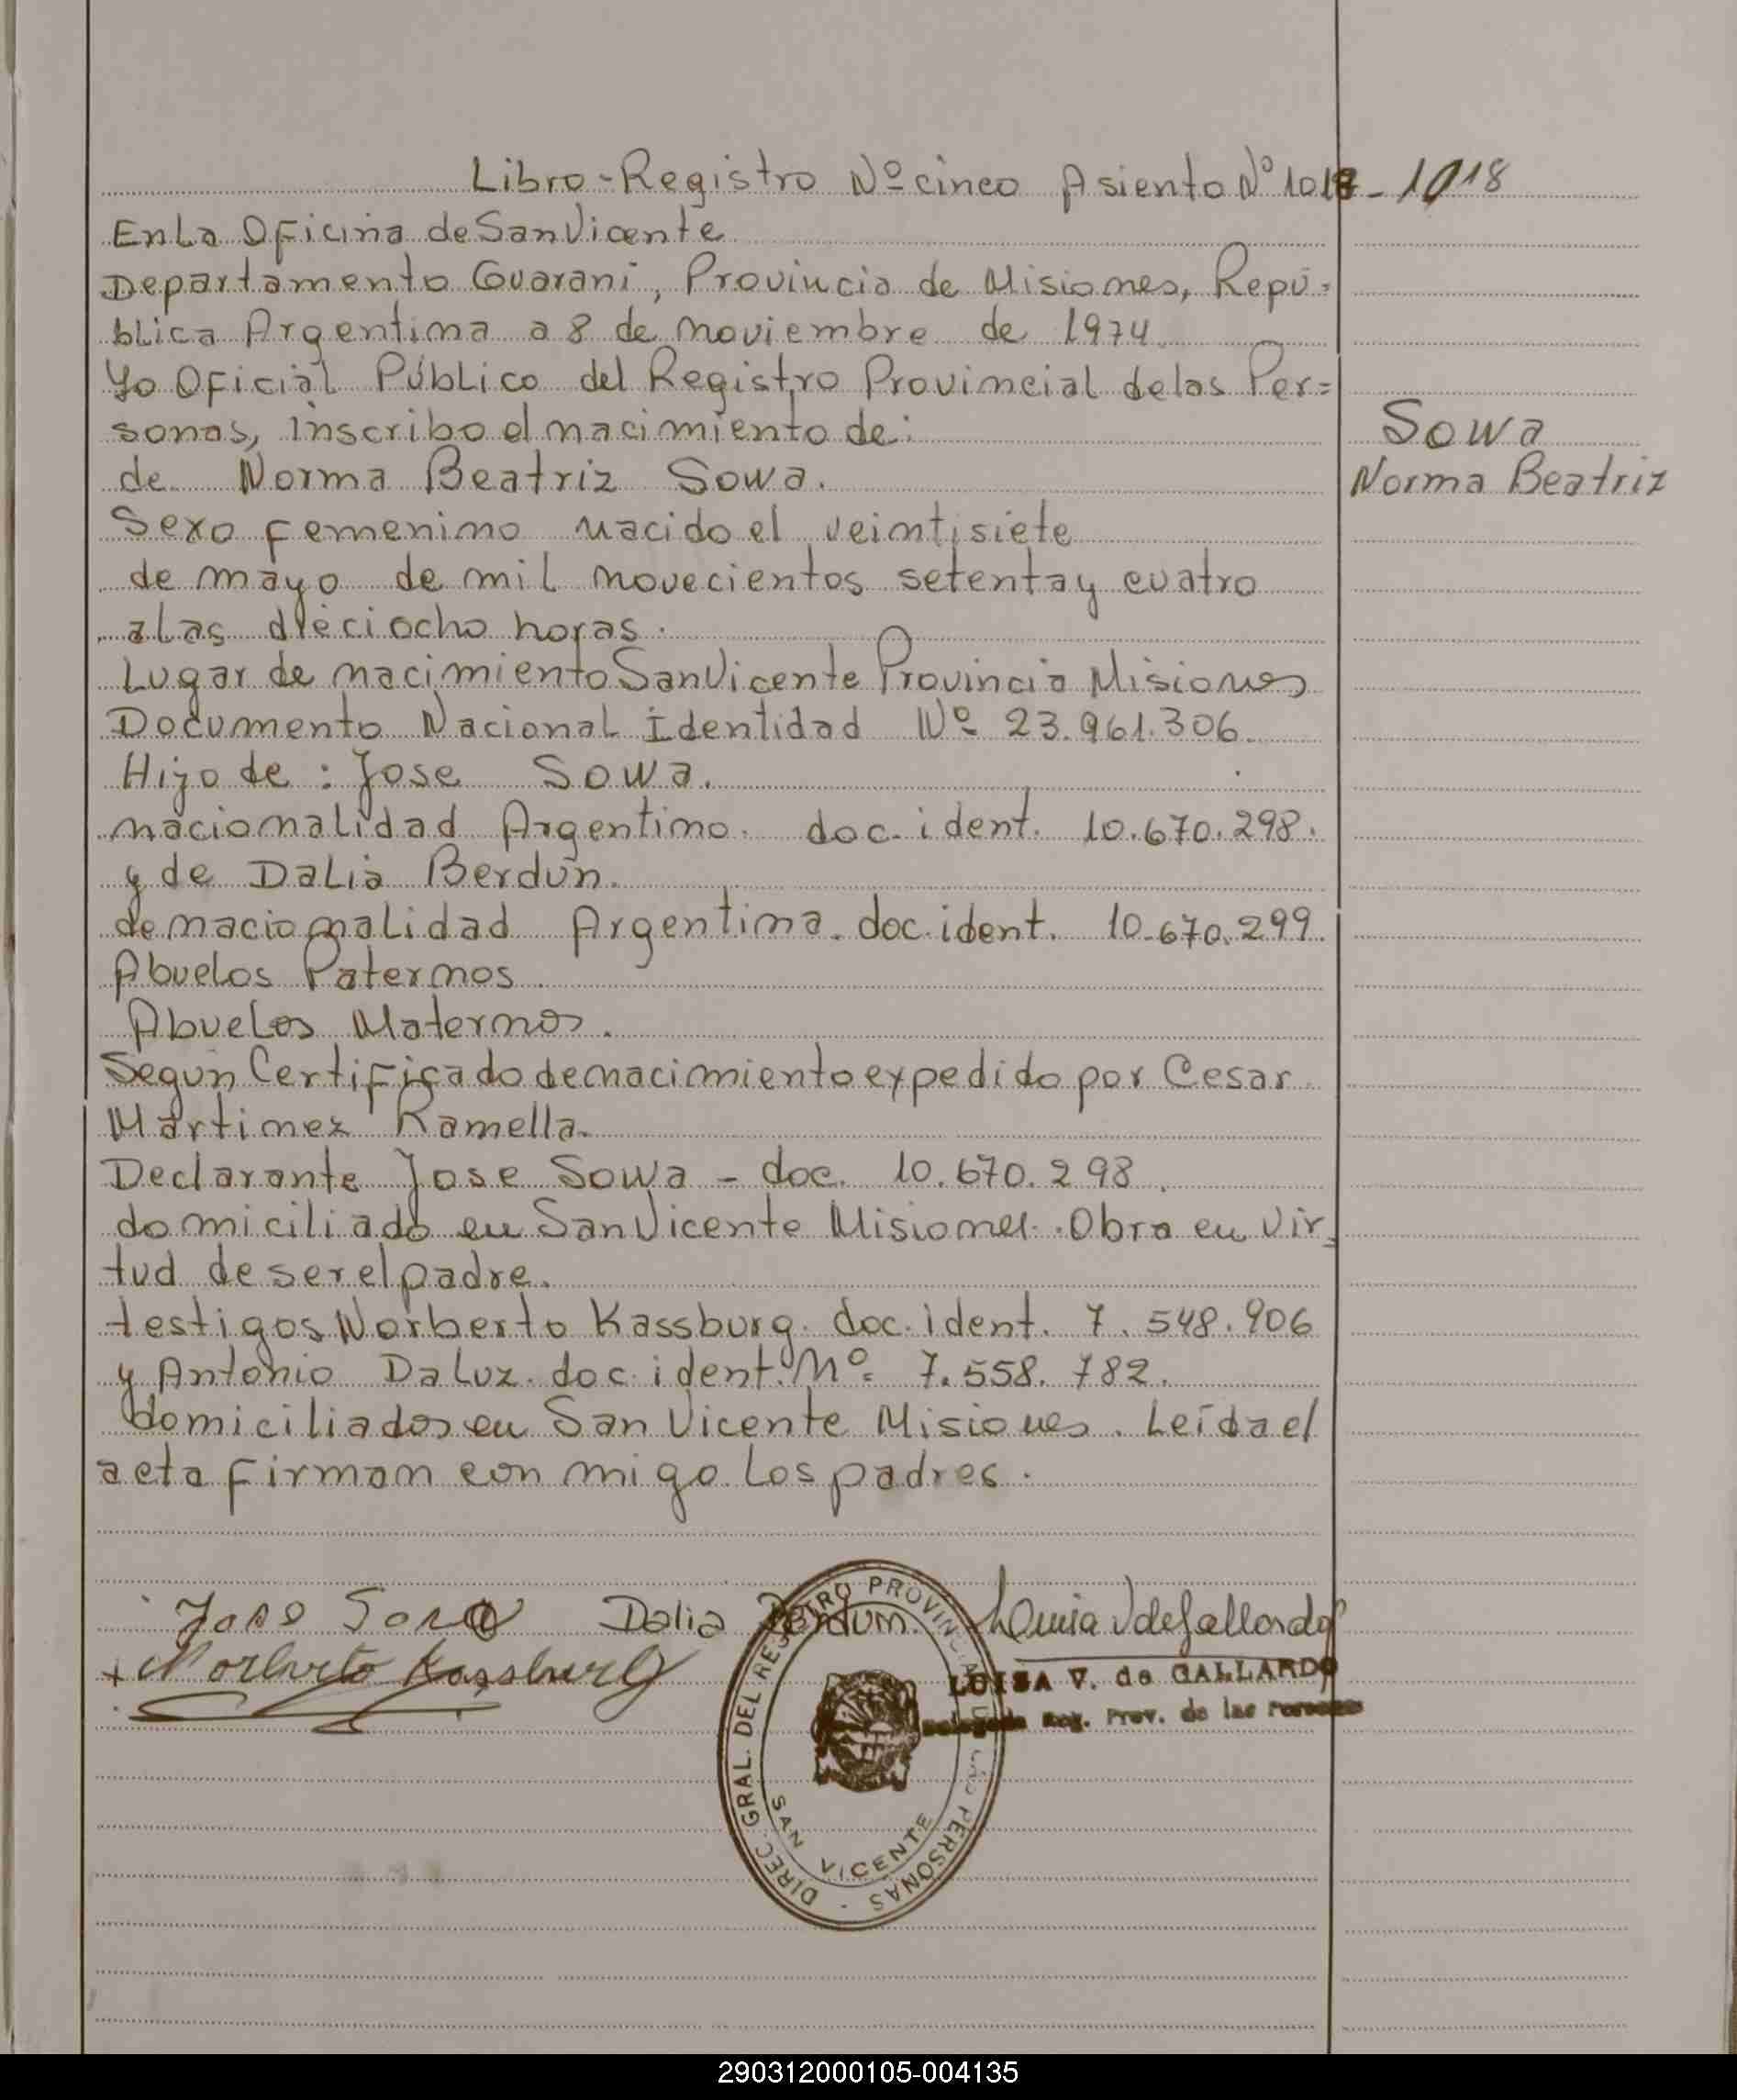 Libro-Registro Nº cinco Asiento Nº 1018 - 1018
En La Oficina de San Vicente
Departamento Guarani, Provincia de Misiones, Repú=
blica Argentina a 8 de noviembre de 1974.
Yo Oficial Público del Registro Provincial de las Per=
sonas, inscribo el nacimiento de:
Sowa
de Norma Beatriz Sowa.
Norma Beatriz
Sexo femenino nacido el veintisiete
de mayo de mil novecientos setenta y cuatro
a las dieciocho horas.
Lugar de nacimiento San Vicente Provincia Misiones
Documento Nacional Identidad Nº 23.961.306.
Hijo de : Jose Sowa.
nacionalidad Argentino. doc. ident. 10.670.298.
y de Dalia Berdún.
de nacionalidad Argentina. doc. ident. 10.670.299.
Abuelos Paternos.
Abuelos Maternos.
Según Certificado de nacimiento expedido por Cesar
Martinez Ramella.
Declarante Jose Sowa - doc. 10.670.298.
domiciliado en San Vicente Misiones. Obra en vir=
tud de ser el padre.
testigos Norberto Kassburg. doc. ident. 7.548.906
y Antonio Da Luz. doc. ident. Nº 7.558.782.
domiciliados en San Vicente Misiones. Leída el
acta firman con migo Los padres.
Jose Sova Dalia Berdum. Louisa V de Gallardo
+ Norberto Kassburg
LUISA V. de GALLARDO
Delegada Reg. Prov. de las Personas
DIREC. GRAL. DEL REGISTRO PROVINCIAL DE LAS PERSONAS
SAN VICENTE
290312000105-004135